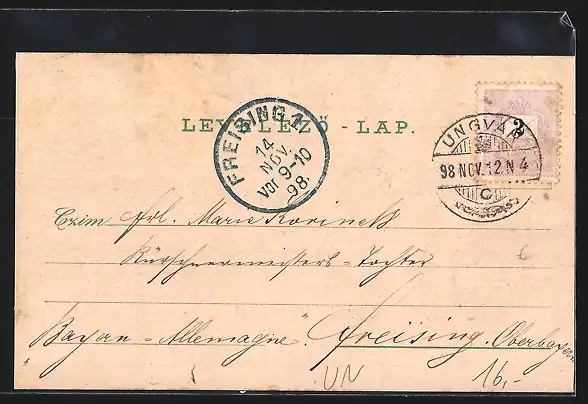 LEVELEZŐ - LAP.
FREISING 1
14
NOV.
Vor 9-10
98.
2
UNGVÁR
98 NOV. 12. N 4
C
Czim Frl. Marie Korinek
Kürschnermeisters = Tochter
"Bayan = Allemagne". Freising. Oberbayern
UN
16,-